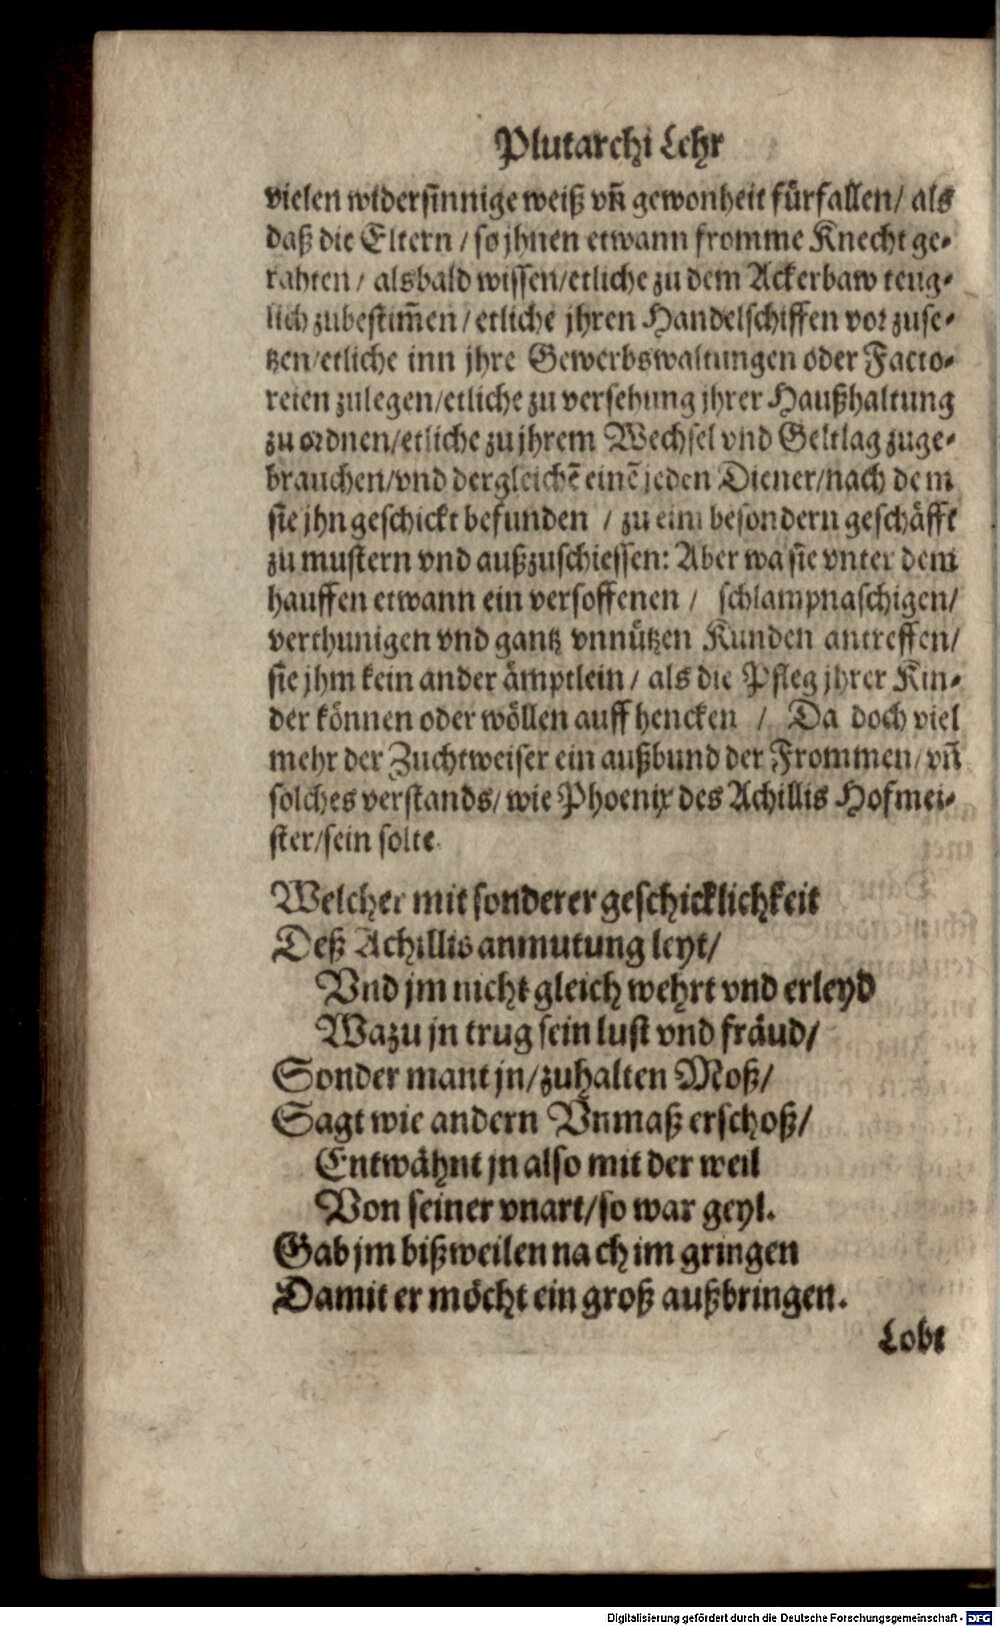 Plutarchi Lehr
vielen widersinnige weiß vñ gewonheit fürfallen/ als
daß die Eltern / so jhnen etwann fromme Knecht ge-
rahten / alsbald wissen/etliche zu dem Ackerbaw teug-
lich zubestim̃en / etliche jhren Handelschiffen vor zuse-
tzen/etliche inn jhre Gewerbswaltungen oder Facto-
reien zulegen/etliche zu versehung jhrer Haußhaltung
zu ordnen/etliche zu jhrem Wechsel vnd Geltlag zuge-
brauchen/vnd dergleichẽ einẽ jeden Diener/nach dem
sie jhn geschickt befunden / zu eim besondern geschäfft
zu mustern vnd außzuschiessen: Aber wa sie vnter dem
hauffen etwann ein versoffenen / schlampnaschigen/
verthunigen vnd gantz vnnützen Kunden antreffen/
sie jhm kein ander ämptlein / als die Pfleg jhrer Kin-
der können oder wöllen auff hencken / Da doch viel
mehr der Zuchtweiser ein außbund der Frommen/ vñ
solches verstands/ wie Phoenix des Achillis Hofmei-
ster/sein solte.
Welcher mit sonderer geschicklichkeit
Deß Achillis anmutung leyt/
Vnd jm nicht gleich wehrt vnd erleyd
Wazu jn trug sein lust vnd fräud/
Sonder mant jn/zuhalten Moß/
Sagt wie andern Vnmaß erschoß/
Entwähnt jn also mit der weil
Von seiner vnart/so war geyl.
Gab jm bißweilen nach im gringen
Damit er möcht ein groß außbringen.
Lobt
Digitalisierung gefördert durch die Deutsche Forschungsgemeinschaft - DFG